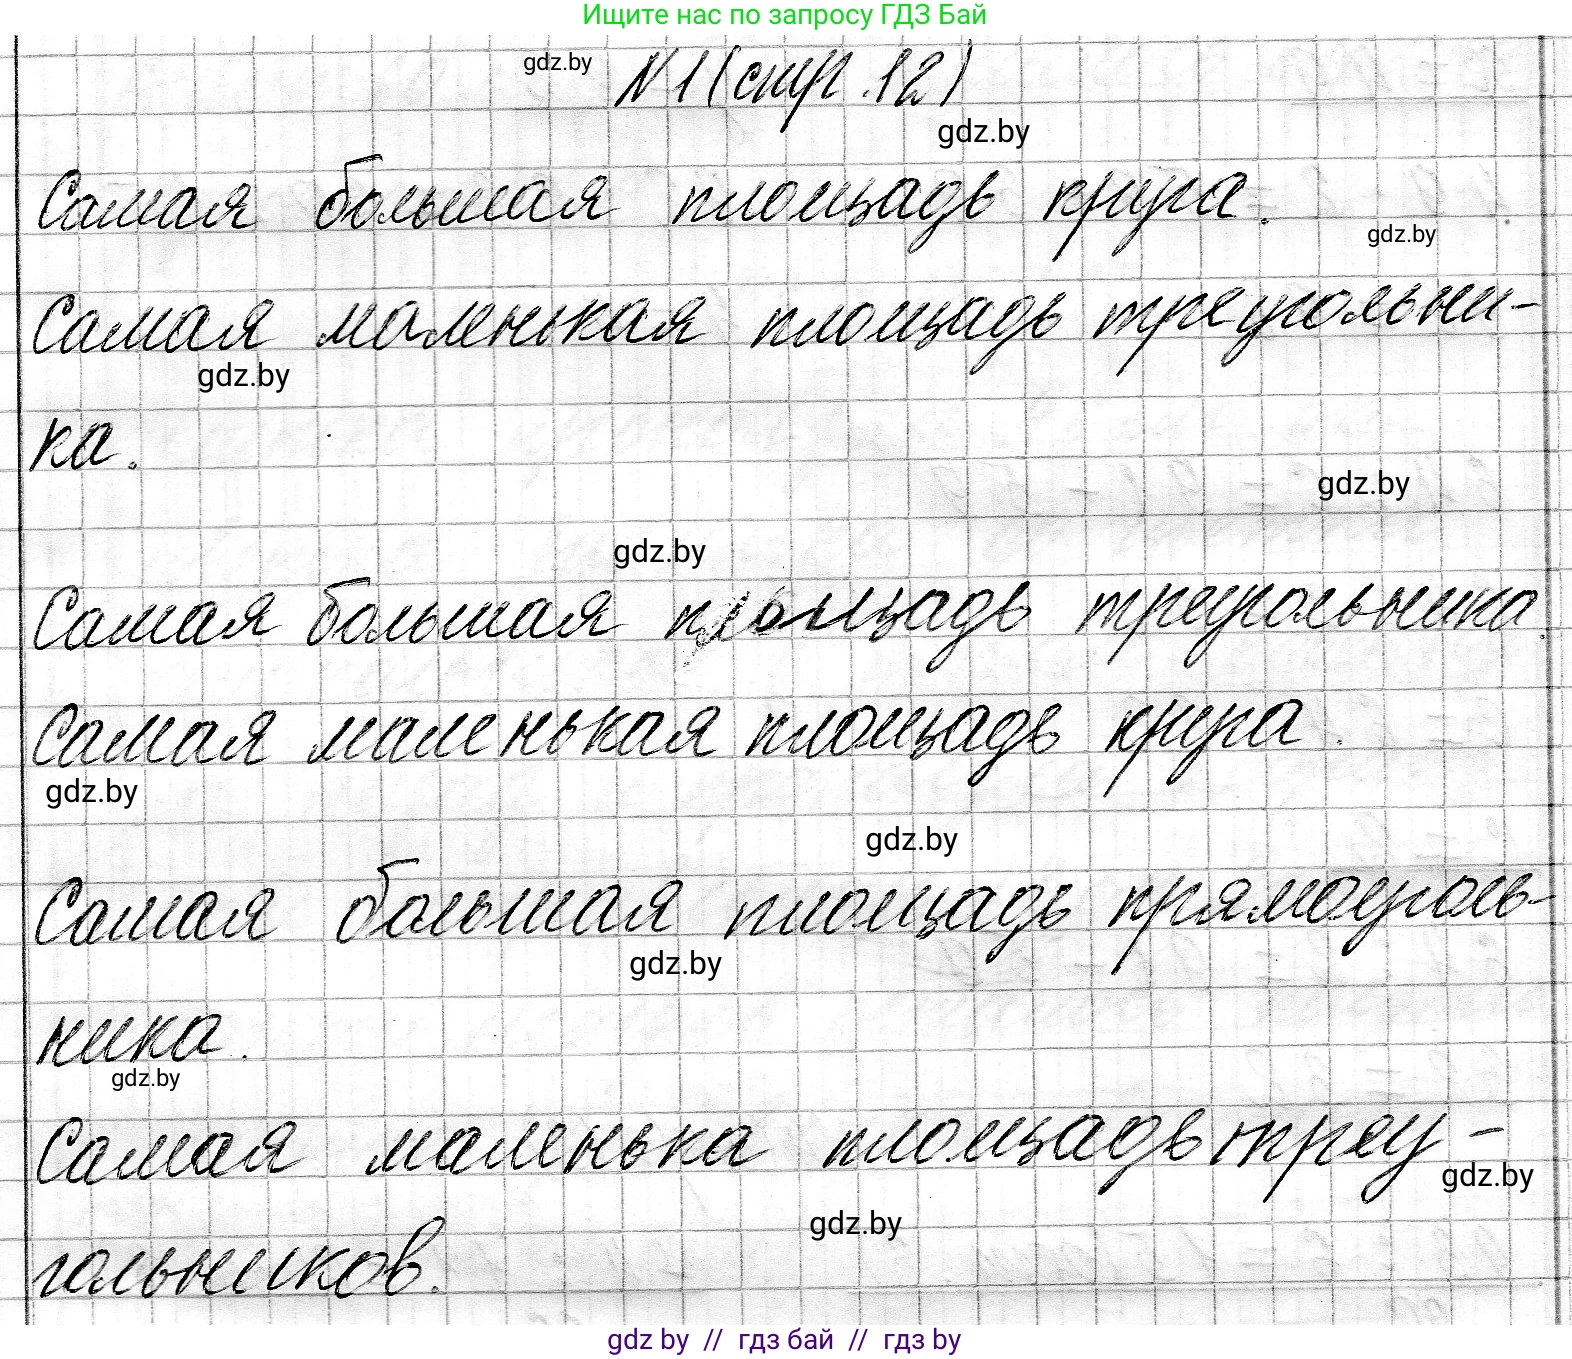 Ищите нас по запросу ГДЗ Бай
gdz.by
N 1 (стр. 12)
gdz.by
Самая большая площадь круга.
gdz.by
Самая маленькая площадь треугольни-
gdz.by
ка.
gdz.by
gdz.by
Самая большая площадь треугольника.
Самая маленькая площадь круга.
gdz.by
gdz.by
Самая большая площадь прямоуголь-
gdz.by
ника.
gdz.by
Самая маленька площадь треу-
gdz.by
gdz.by
гольников.
gdz by // гдз бай // гдз by